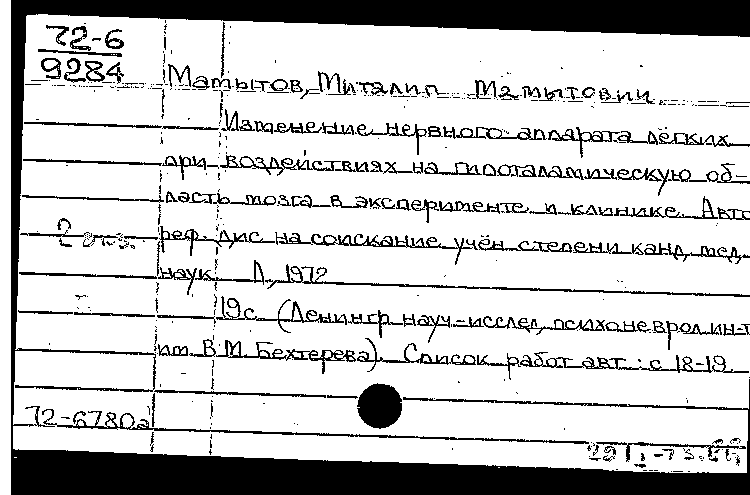 72-6
9284
Маытов, Миталип Маытович.
Изменение нервного аппарата лёгких
при воздействиях на гипоталамическую об-
ласть мозга в эксперименте и клинике. Авто
реф. дис на соискание учён степени канд. мед.
2 экз.
наук. Л., 1972
19 с. (Ленингр науч-исслед, психоневрол ин-т
им. В М. Бехтерева). Список работ авт : с 18-19.
72-6780а